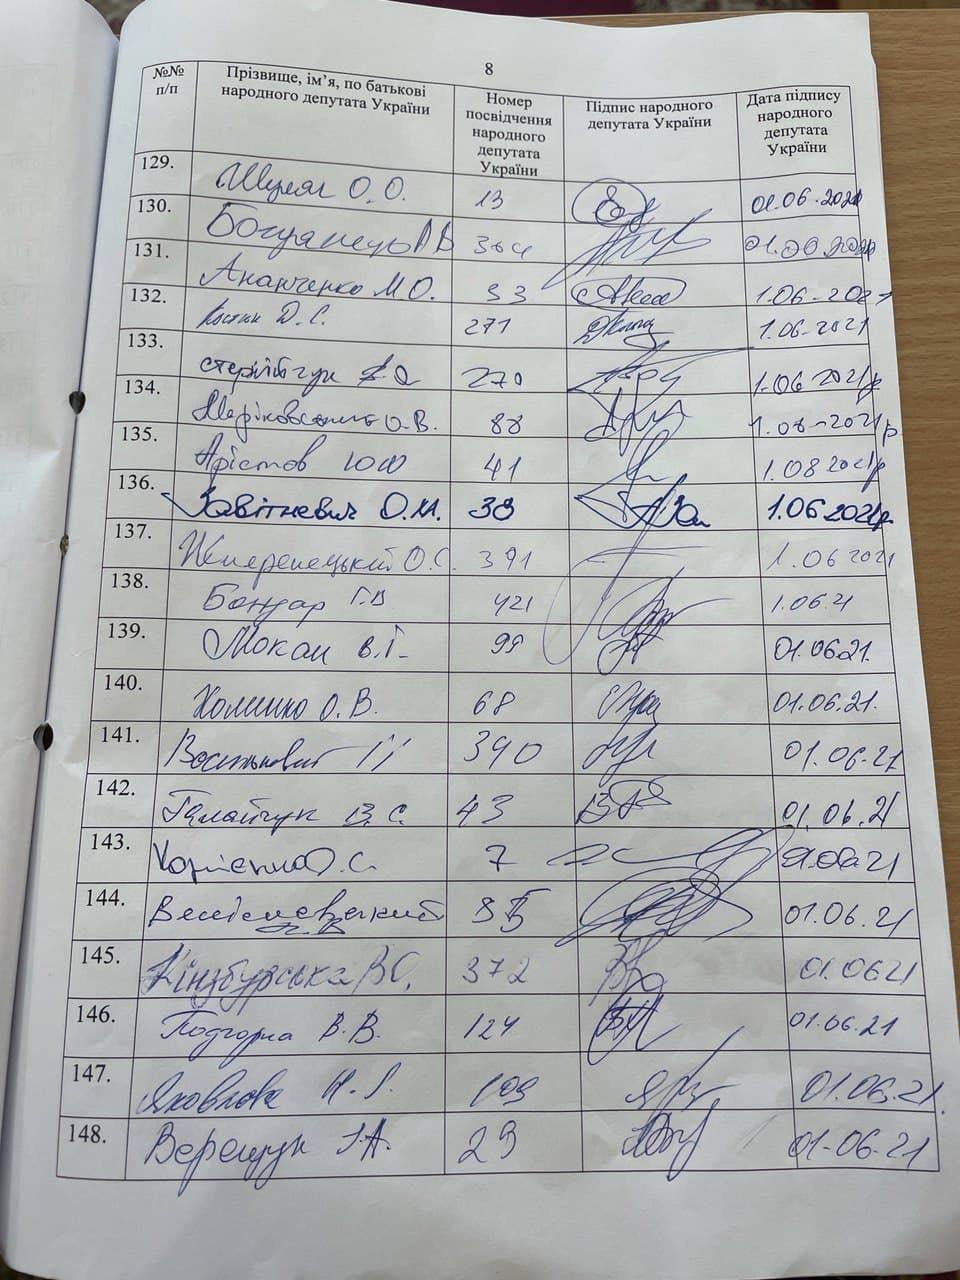 8
№№ п/п Прізвище, ім’я, по батькові народного депутата України Номер посвідчення народного депутата України Підпис народного депутата України Дата підпису народного депутата України
129. Шуляк О.О. 13 01.06.2021
130. Богуанець А.В 364 01.06.2021
131. Ананченко М.О. 33 1.06-2021
132. Костін Д.С. 271 1.06-2021
133. Стернійчук 270 1.06 2021р
134. Маріковський О.В. 88 1.06-2021р
135. Арістов Ю Ю 41 1.06 2021р
136. Завітневич О.М. 38 1.06 2021р
137. Жмеренецький О.С. 391 1.06 2021
138. Бондар Г.В 421 1.06.21
139. Мокан В.І. 99 01.06.21.
140. Хоменко О.В. 68 01.06.21.
141. 390 01.06.21
142. Галайчук В.С. 43 01.06.21
143. Корнієнко О.С. 7 01.06.21
144. 01.06.21
145. Кінзбурська В.О. 372 01.0621
146. Подгорна В.В. 124 01.06.21
147. Яковлєва Н.І. 109 01.06.21.
148. Верещук І.А. 29 01.06.21